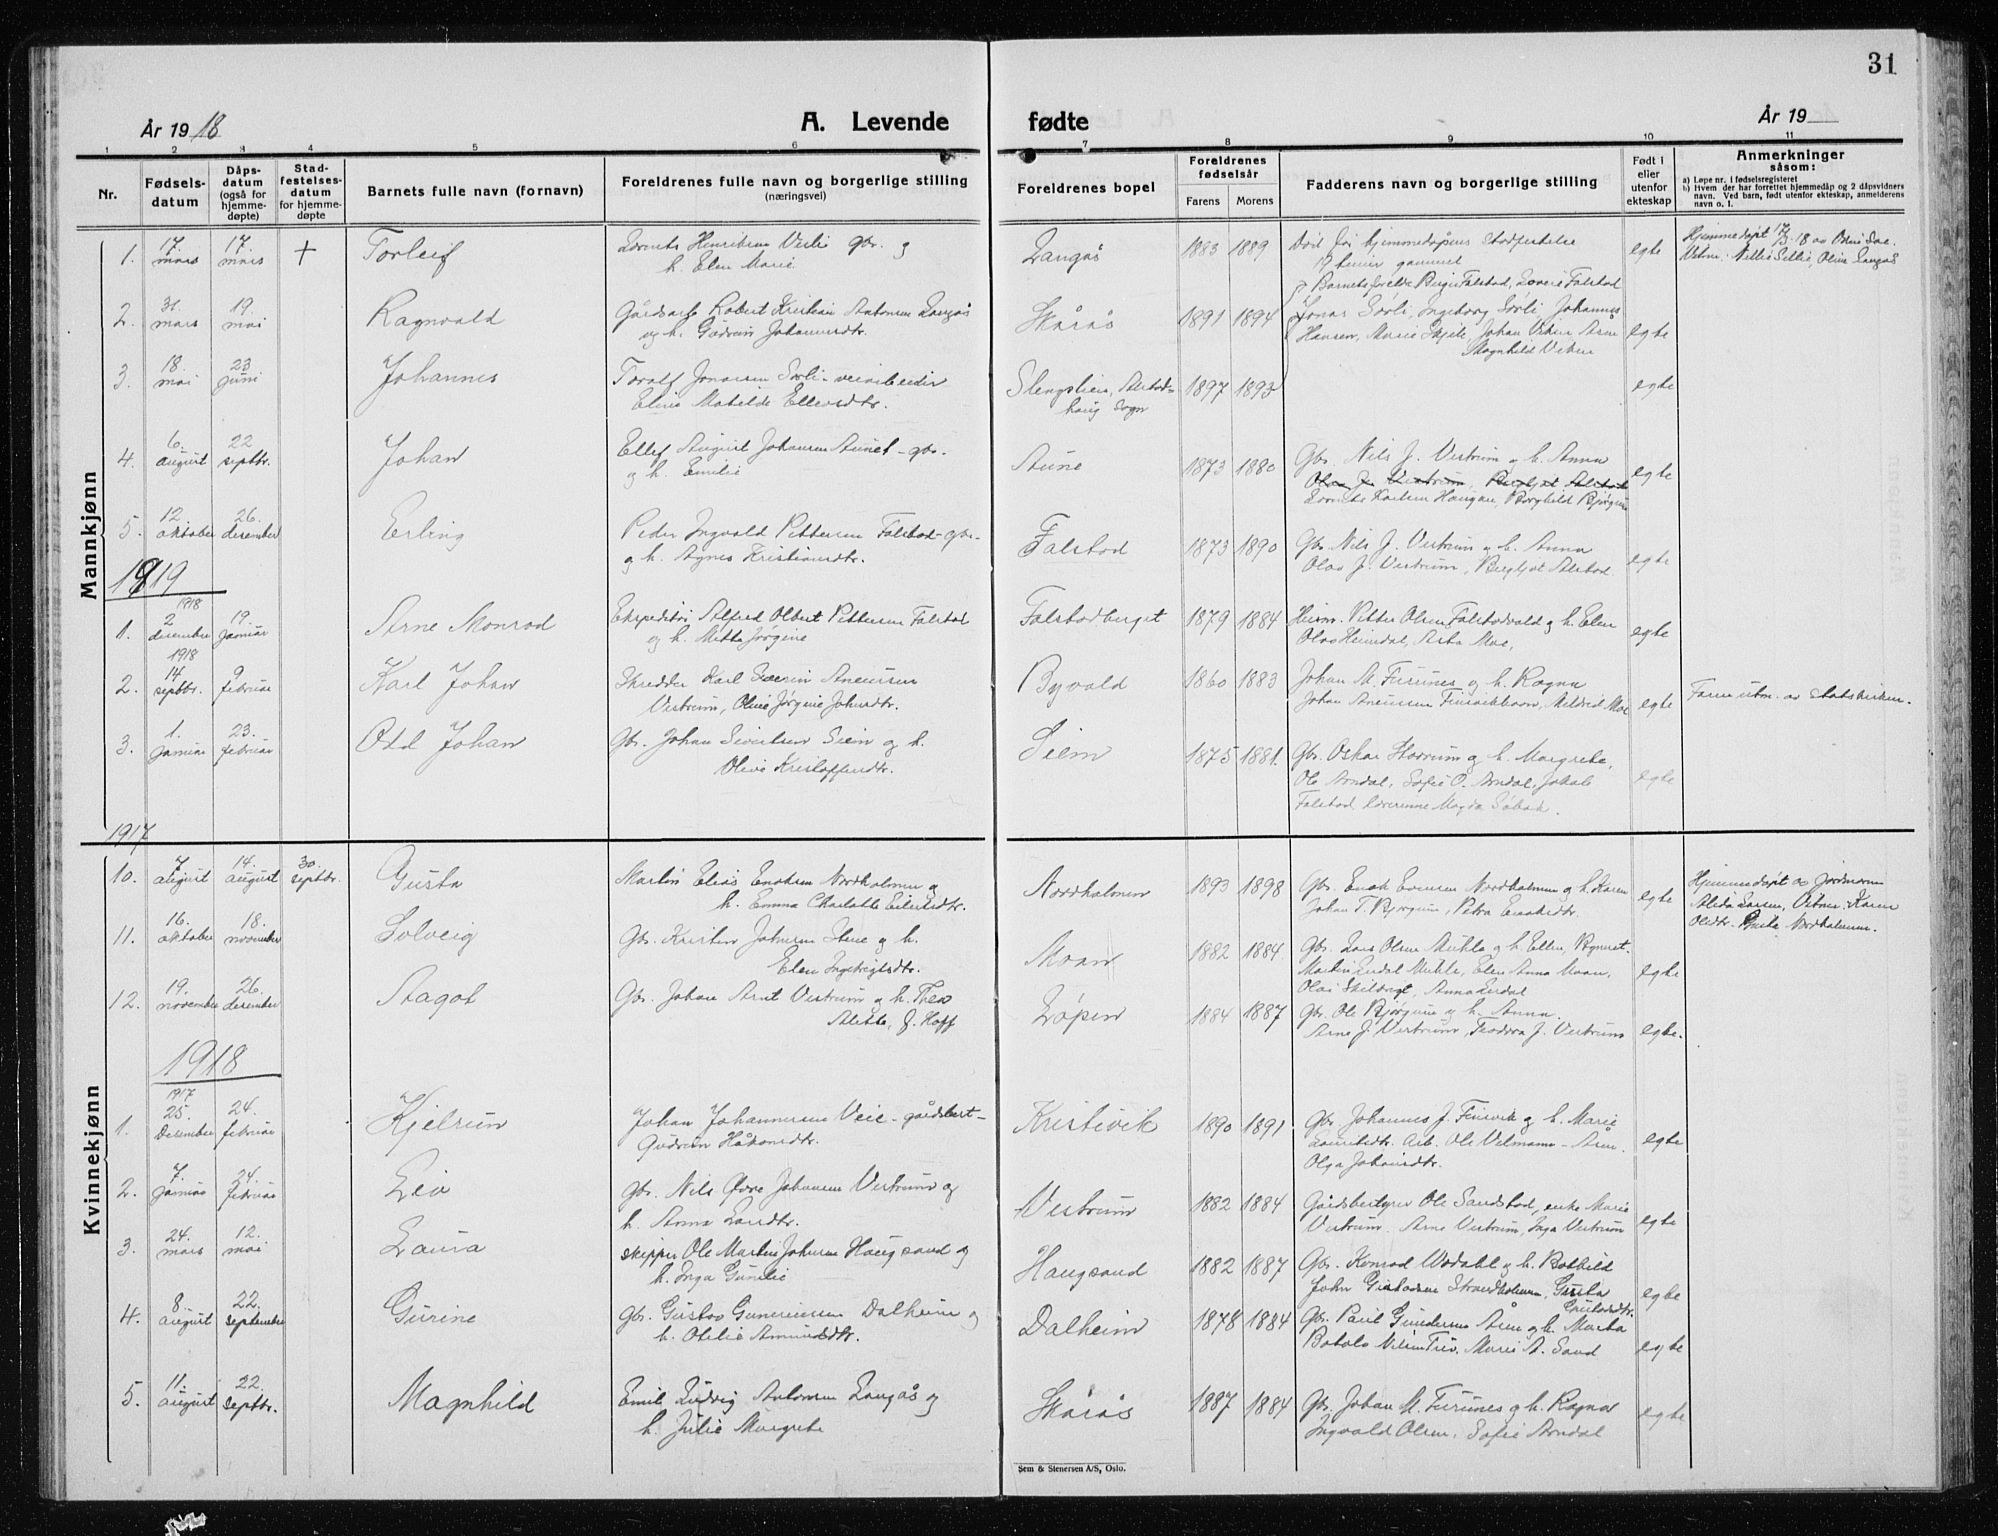 31
År 1918
A. Levende
fødte
År 19
1 2 3 4 5 6 7 8 9 10 11
Nr.
Fødsels-
datum
Dåps-
datum
(også for
hjemme-
døpte)
Stad-
festelses-
datum
for hjemme-
døpte
Barnets fulle navn (fornavn)
Foreldrenes fulle navn og borgerlige stilling
(næringsvei)
Foreldrenes bopel
Foreldrenes
fødselsår
Farens Morens
Fadderens navn og borgerlige stilling
Født i
eller
utenfor
ekteskap
Anmerkninger
såsom:
a) Løpe nr. i fødselsregisteret
b) Hvem der har forrettet hjemmedåp og 2 dåpsvidners
navn. Ved barn, født utenfor ekteskap, anmelderens
navn o. l.
Mannkjønn
1. 17. mars 17. mars + Torleif
Henriksen Veslie gbr. og
h. Elen Marie
Langås 1883 1889
Død før hjemmedåpens Stadfestelse
17 timer gammel
egte
Hjemmedøpt 17/3 18 av
2. 31. mars 19. mai Ragnvald
Gårdsarb. Robert Kristian Antonsen Langås
og h. Gudrun Johannesdtr.
Skårås 1891 1894
Barnets forelde Birger Falstad, Falstad
Jonas Sørli, Ingeborg Sørli, Johannes
Hansen, Marie Johan Viken
Magnhild Viken
egte
3. 18. mai 23 juni Johannes
Toralf Jonassen Sørli - veiarbeider
Eline Matilde Ellevsdtr.
Alstad-
haug Sogn
1897 1893
egte
4. 6. august 22 septbr. Johan
Ellef August Johansen Aunet - gbr.
og h. Emilie
Aune 1873 1880
Gbr. Nils J. Vestrum og h. Anna
Haugan, Borghild Bjørgum
egte
5. 12. oktober 26. desember Erling
Peder Ingvald Pettersen Falstad - gbr.
og h. Agnes Kristiansdtr.
Falstad 1873 1890
Gbr. Nils J. Vestrum og h. Anna
Olav J. Vestrum, Bergljot Alstad.
egte
1919
1. 1918 2 desember 19. januar Arne Monrad
Ekspeditør Alfred Olbert Pettersen Falstad
og h. Mette Jørgine
Falstadberget 1879 1884
Husm. Petter Olsen Falstadvald og h. Elen
Olav Heimdal, Asta Moe,
egte
2. 1918 14 septbr. 9 februar Karl Johan
Skredder Karl Severin Aneusen
Vestrum, Oline Jørgine Johnsdtr.
Byvald 1860 1883
Johan M. Furunes og h. Ragna
Johan Aneussen Finsvikhavn, Mildrid Moe
egte
Faren utm. av Statskirken.
3. 1. januar 23. februar Odd Johan
Gbr. Johan Sivertsen Seem og h.
Olivia Kristoffersdtr.
Seem 1875 1881.
Gbr. Oskar Hovrum og h. Margrete,
Ole Arndal, Sofie O. Arndal, Jakob
Falstad, Lærerinne Magda Søbak.
egte
1917
Kvinnekjønn
10. 7 august 14. august 30. septbr. Gusta
Martin Elias Enoksen Nordholmen og
h. Emma Charlotte Eilersdtr.
Nordholmen 1893 1898
Gbr. Enok Evensen Nordholmen og h. Karen
Johan T. Bjørgum, Petra Enoksdtr.
egte
Hjemmedøpt av Jordmoren
Alida Larsen, Vitner: Karen
Olsdtr. Gusta Nordholmen.
11. 16. oktober 18. november Solveig
Gbr. Kristen Johnsen Stene og h.
Elen Ingebrigtsdtr.
Moan 1882 1884.
Gbr. Lars Olsen Muhle og h. Ellen,
Martin Lerdal Muhle, Elen Anna Moan,
Anna Lerdal
egte
12. 19. november 26. desember Aagot
Gbr. Johan Arnt Vestrum og h. Thea
Alette, J. Hoff
Løpen 1884 1887
Gbr. Ole Bjørgum og h. Anna.
Arne J. Vestrum, Teodora J. Vestrum
egte.
1918
1. 1917 25. Desember 24. februar Kjelrun
Johan Johannessen Veie - gårdsbest-
Gudrun Håkonsdtr.
Kristivik 1890 1891
Gbr. Johannes J. Finsvik og h. Marie
Lauritsdtr. Arb. Ole Velmann - Aren.
Olga Johansdtr.
egte
2. 7. januar 24. februar Liv
Gbr. Nils Øvre Johansen Vestrum og
h. Anna Larsdtr.
Vestrum 1882 1884
Gårdsbestyrer Ole Sandstad, enke Marie
Vestrum. Arne Vestrum, Inga Vestrum
egte
3. 24. mars 12. mai Laura
skipper Ole Martin Johnsen Haugsand og
h. Inga Gunelie
Haugsand 1882 1887
Gbr. Konrad Wodahl og h. Bothild
John Gustavsen Strandholmen, Gusta
Gustavsdtr.
egte
4. 8. august 22. september Gurine
Gbr. Gustav Gunneriussen Dalheim og
h. Otelie Amundsdtr.
Dalheim 1878 1884
Gbr. Paul Gundersen Aren og h. Marta
Botolv Nilsen Trøv, Marie A. Sand
egte
5. 11. august 22. septbr. Magnhild
Emil Ludvig Antonsen Langås og
h. Julie Margrete
Skårås 1887 1884
Gbr. Johan M. Furunes og h. Ragna
Ingvald Olsen, Sofie Arndal
egte
Sem & Stenersen A/S, Oslo.